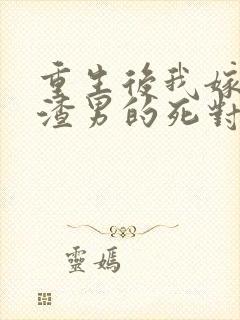 重生後我嫁
渣男的死對
靈媽